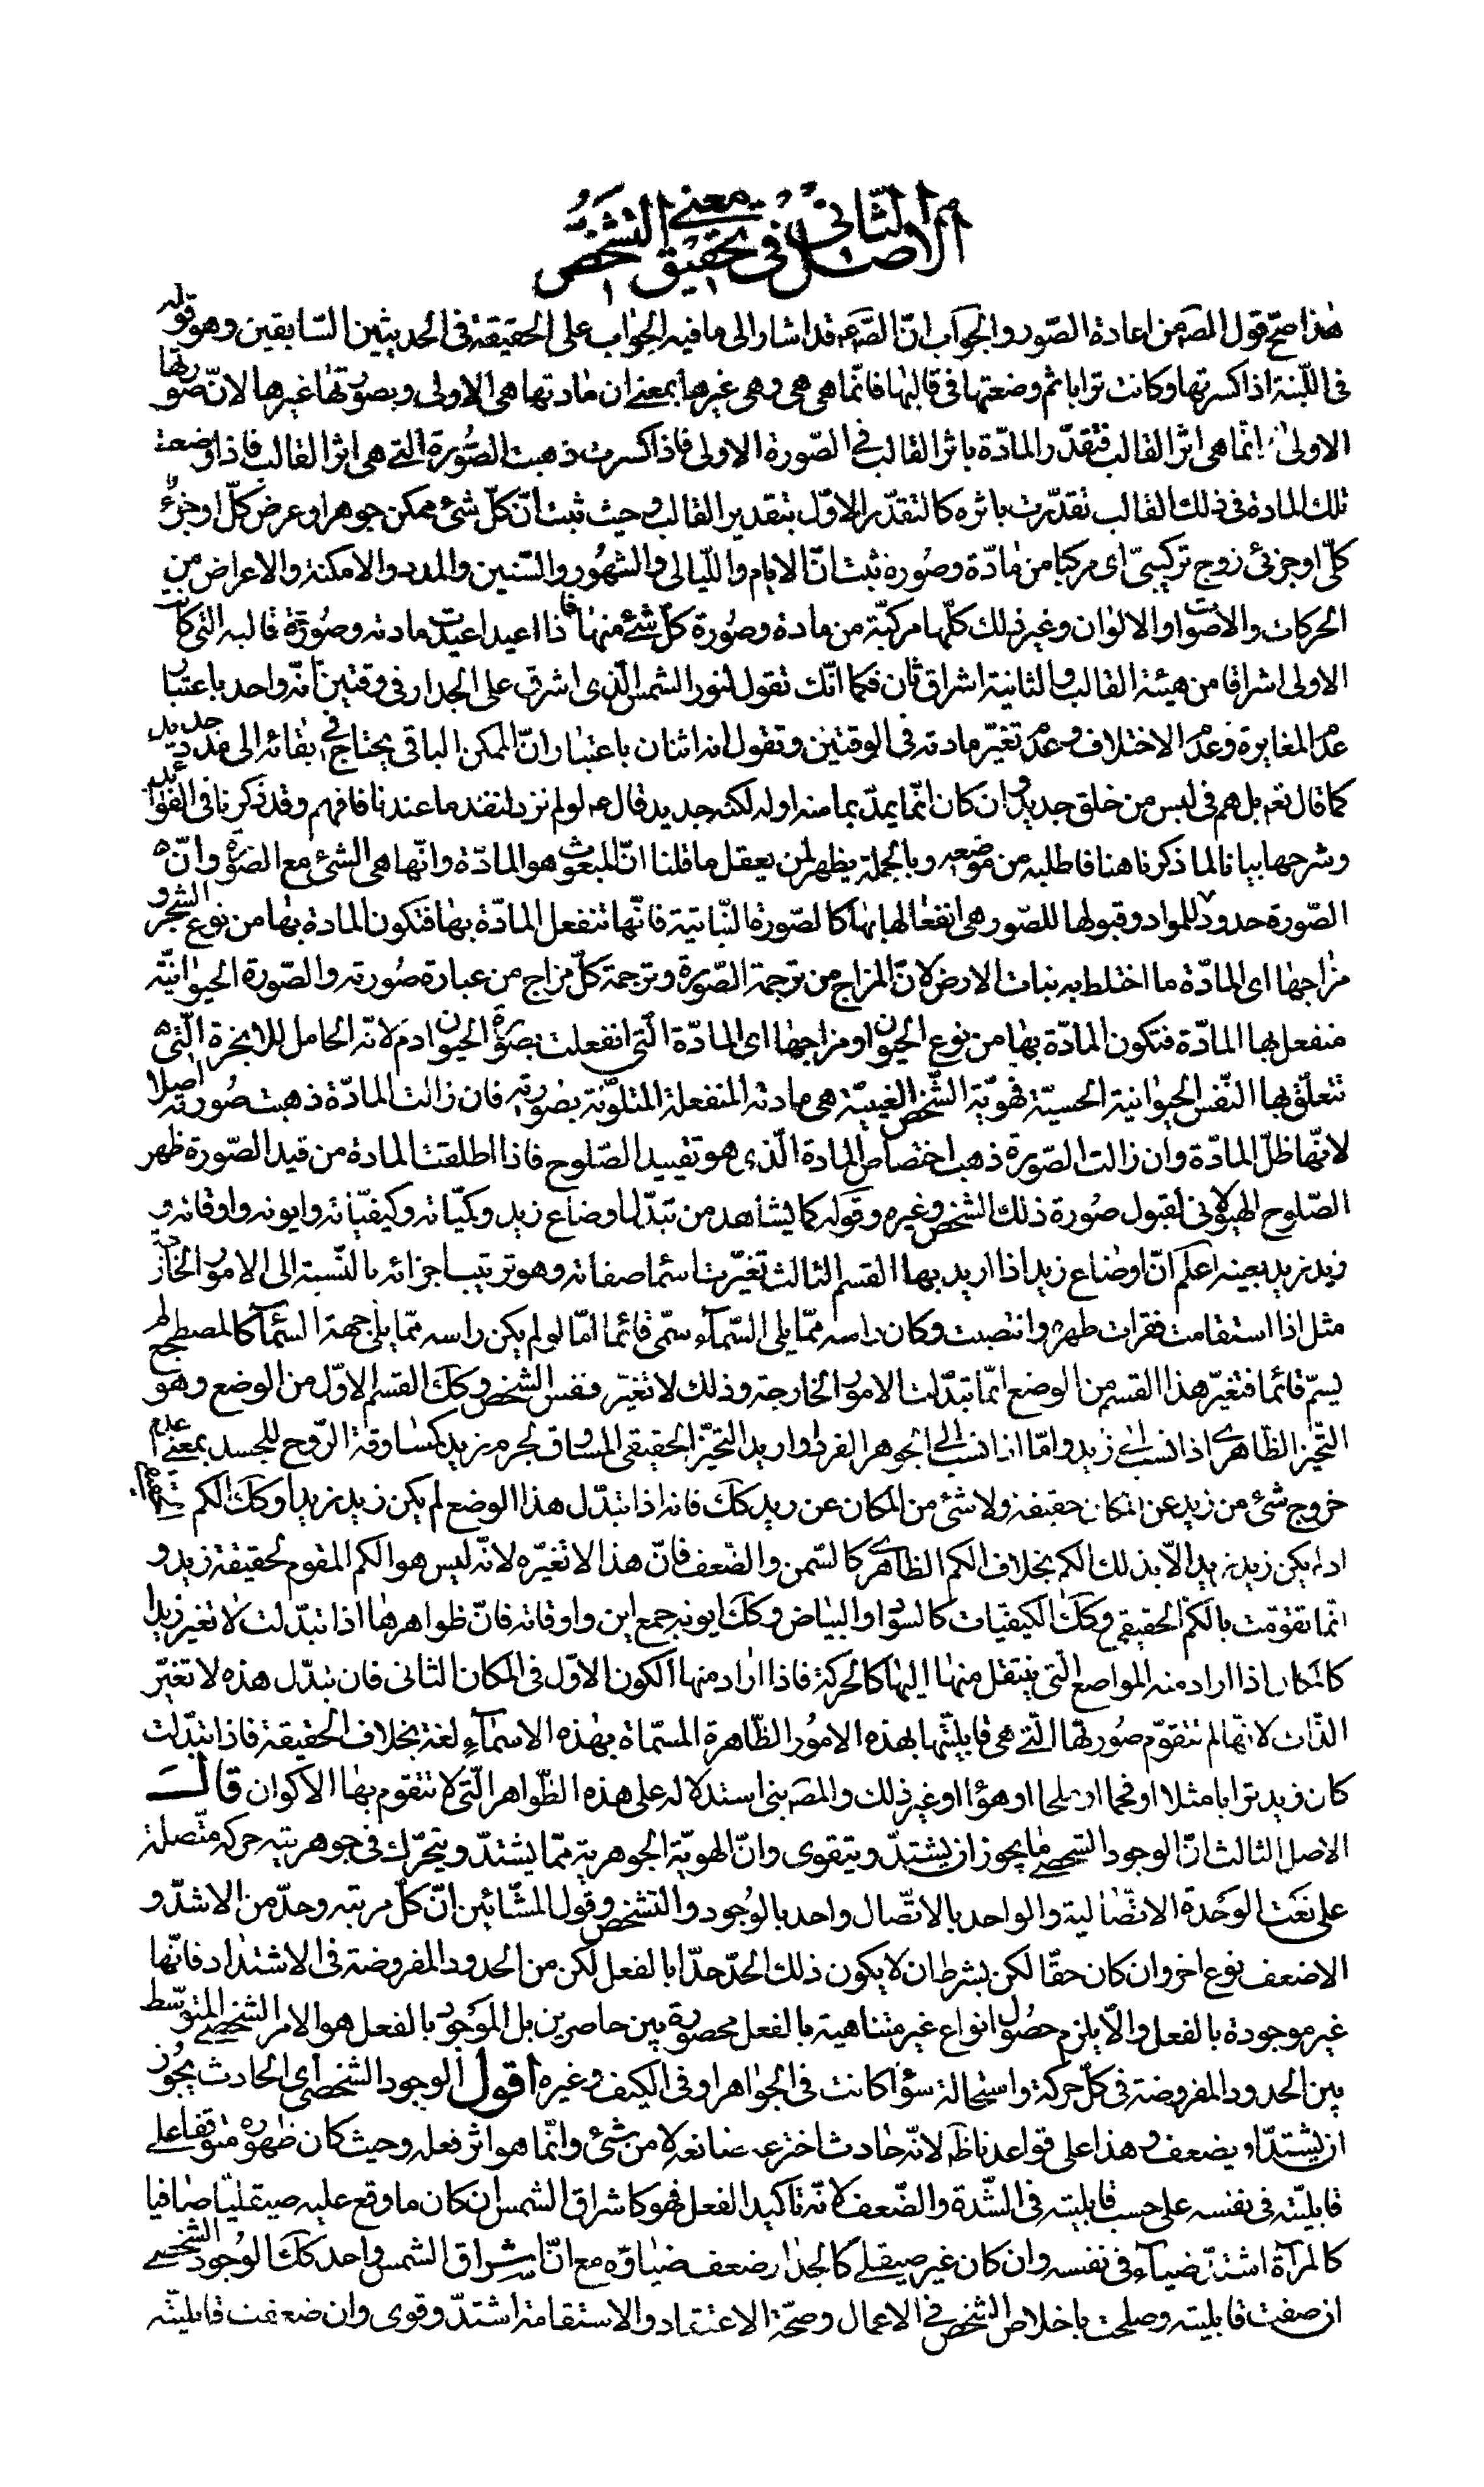 الاصل الثاني في تحقيق معنى التشخص
هذا صح قول المصه من اعادة الصّور والجواب انّ الصّ ع قد اشار الى ما فيه الجواب على الحقيقة في الحديثين السّابقين وهو قوله
في اللّبنة اذا كسرتها وكانت ترابا ثم وضعتها في قالبها فانّما هي هي وهي غيرها بمعنى ان مادتها هي الاولى وبصورتها غيرها لانّ صورتها
الاولى انّما هي اثر القالب فتقدّر المادّة باثر القالب في الصّورة الاولى فاذا كسرت ذهبت الصّورة التي هي اثر القالب فاذا وضعت
تلك المادة في ذلك القالب تقدّرت باثره كالتقدّر الاوّل بتقدير القالب وحيث ثبت انّ كلّ شئ ممكن جوهر او عرض كلّ او جزؤ
كلّى او جزئى زوج تركيبىّ اى مركبا من مادّة وصورة ثبت انّ الايام والليالى والشهور والسّنين والمدد والامكنة والاعراض من
الحركات والاصوات والالوان وغير ذلك كلّها مركبّة من مادة وصورة كلّ شئ منها فاذا اعيد اعيدت مادته وصورته قالبه التى كانت
الاولى اشراقا من هيئة القالب والثانية اشراق ثان فكما انّك تقول لنور الشمس الّذى اشرق على الجدار في وقتين انّه واحد باعتبار
عدم المغايرة وعدم الاختلاف وعدم تغيّر مادته في الوقتين وتقول انه اثنان باعتبار انّ الممكن الباقى يحتاج في بقائه الى مدد جديد
كما قال تعه بل هم في لبس من خلق جديد وان كان انّما يمدّ بما منه او له لكنّه جديد قال عه لو لم نزد لنفد ما عندنا فافهم وقد ذكرنا في الفوائد
وشرحها بيانا لما ذكرنا هنا فاطلبه من موضعه وبالجملة يظهر لمن يعقل ما قلنا انّ المبعوث هو المادّة وانّها هي الشئ مع الصّورة وانّ
الصّورة حدود للمواد وقبولها للصّور هي انفعالها بها كالصّورة النّباتية فانّها تنفعل المادّة بها فتكون المادة بها من نوع الشجر و
مزاجها اى المادّة ما اختلط به نبات الارض لانّ المزاج من ترجمة الصّورة وترجمة كلّ مزاج من عبارة صورته والصّورة الحيوانيّة
منفعل بها المادّة فتكون المادّة بها من نوع الحيوان ومزاجها اى المادّة الّتى انفعلت بصورة الحيوان دم لانّه الحامل للابخرة الّتى
تتعلّق بها النّفس الحيوانية الحسيّة فهويّة الشّخص هي مادته المنفعلة المتلوّنة بصورته فان زالت المادّة ذهبت صورته اصلا
لانّها ظلّ المادّة وان زالت الصّورة ذهب اختصاص المادة الّذى هو تقييد الصّلوح فاذا اطلقت المادة من قيد الصّورة ظهر
الصّلوح الهيولانى لقبول صورة ذلك الشخص وغيره وقوله كما يشاهد من تبدّل اوضاع زيد وكميّاته وكيفيّاته وايونه واوقاته و
زيد زيد بعينه اعلم انّ اوضاع زيد اذا اريد بها القسم الثالث تغيّرت اسما صفاته وهو ترتيب اجزائه بالنّسبة الى الامور الخارجة
مثل اذا استقامت فقرات ظهره وانتصبت وكان راسه ممّا يلى السّماء سمّى قائما امّا لو لم يكن راسه ممّا يلى جهة السّماء كالمضطجع لم
يسمّ قائما فتغيّر هذا القسم من الوضع انّما تبدّلت الامور الخارجة وذلك لا تغيّر نفس الشخص وكك القسم الاوّل من الوضع وهو
التّحيّز الظّاهرى اذا نسب الى زيد وامّا اذا نسب الى الجوهر الفرد واريد التحيّز الحقيقى المساوق لجرم زيد كمساوقة الرّوح للجسد بمعنى عدم
خروج شئ من زيد عن المكان حقيقة ولا شئ من المكان عن زيد كك فانه اذا تبدّل هذا الوضع لم يكن زيد زيدا وكك الكم
اذ لم يكن زيد زيدا الاّ بذلك الكم بخلاف الكم الظاهرى كالسّمن والضّعف فانّ هذا لا تغيّره لانّه ليس هو الكم المقوم لحقيقة زيد و
انّما تقوّمت بالكمّ الحقيقى وكك الكيفيات كالسواد والبياض وكك ايونه جمع اين واوقاته فانّ ظواهرها اذا تبدّلت لا تغير زيدا
كالمكان اذا اراد منه المواضع الّتى ينتقل منها اليها كالحركة فاذا اراد منها الكون الاوّل في المكان الثانى فان تبدّل هذه لا تغيّر
الذّات لانّها لم تتقوّم صورتها الّتى هي قابليّتها بهذه الامور الظّاهرة المسمّاة بهذه الاسماء لغة بخلاف الحقيقة فاذا تبدّلت
كان زيد ترابا مثلا او فحما او ملحا او هؤا او غير ذلك والمصه بنى استدلاله على هذه الظّواهر الّتى لا تتقوم بها الاكوان قال
الاصل الثالث انّ الوجود الشخصى مما يجوز ان يشتدّ ويتقوى وانّ الهويّة الجوهريّة ممّا يشتدّ ويتحرّك في جوهريته حركة متّصلة
على نعت الوحدة الاتّصالية والواحد بالاتّصال واحد بالوجود والتشخص وقول المشّائين انّ كلّ مرتبه وحدّ من الاشدّ و
الاضعف نوع اخر وان كان حقّا لكن بشرط ان لا يكون ذلك الحدّ حدّا بالفعل لكن من الحدود المفروضة في الاشتداد فانّها
غير موجودة بالفعل والاّ يلزم حصول انواع غير متناهية بالفعل محصورة بين حاصرين بل الموجود بالفعل هو الامر الشخصى المتوسّط
بين الحدود المفروضة في كلّ حركة واستحالة سؤا كانت في الجواهر او في الكيف وغيره اقول الوجود الشخصى اى الحادث يجوز
ان يشتدّ او يضعف وهذا على قواعدنا ظه لانّه حادث اخترعه صانعه لا من شئ وانّما هو اثر فعله وحيث كان ظهوره متوقفا على
قابليّته في نفسه على حسب قابليته في الشّدة والضّعف لانّه تاكيد الفعل فهو كاشراق الشمس ان كان ما وقع عليه صيقليّا صافيا
كالمرآة اشتدّ ضياءه في نفسه وان كان غير صيقلى كالجدار ضعف ضياؤه مع انّ اشراق الشمس واحد كك الوجود الشخصى
ان صفت قابليته وصلحت باخلاص الشخص في الاعمال وصحّة الاعتقاد والاستقامة اشتدّ وقوى وان ضعفت قابليته